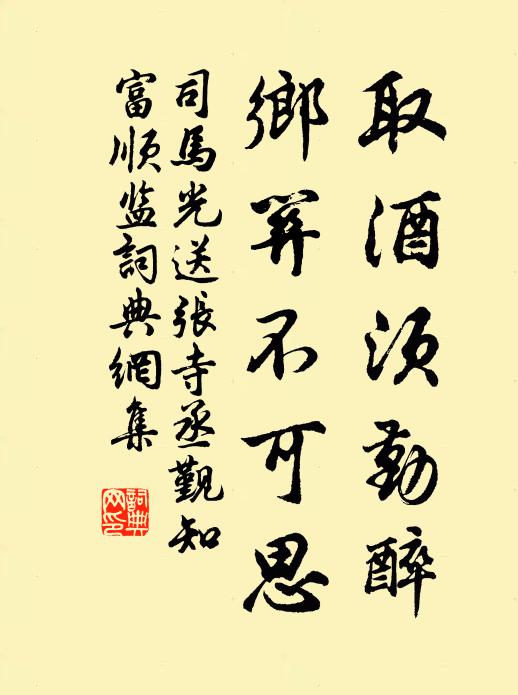 取酒須勤醉
鄉關不可思
司馬光送張寺丞觀知
富順监詞典網集
詞典网印